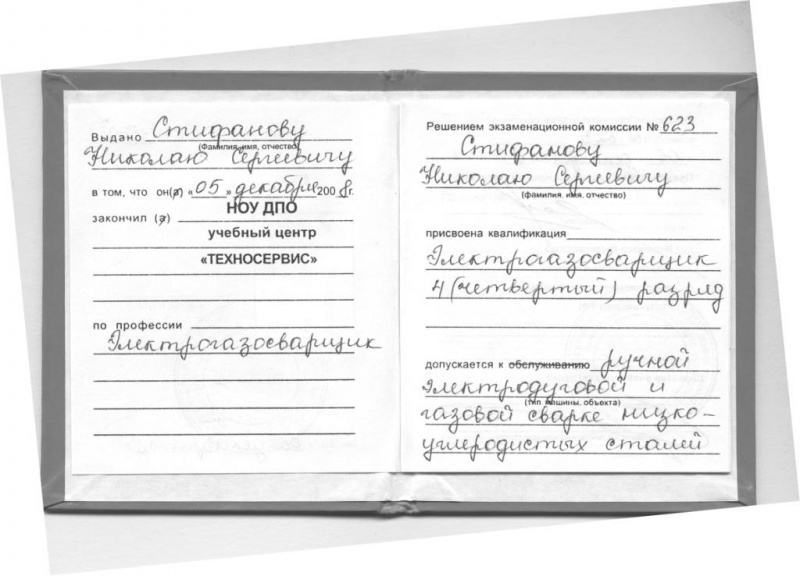 Выдано Стифанову
(Фамилия, имя, отчество)
Николаю Сергеевичу
в том, что он(а) «05» декабре 2008г.
закончил (а)
НОУ ДПО
учебный центр
«ТЕХНОСЕРВИС»
по профессии
Электрогазосварщик
Решением экзаменационной комиссии № 623
Стифанову
Николаю Сергеевичу
(фамилия, имя, отчество)
присвоена квалификация
Электрогазосварщик
4 (четвертый) разряд
допускается к обслуживанию ручной
электродуговой и
(тип машины, объекта)
газовой сварке низко-
углеродистых сталей